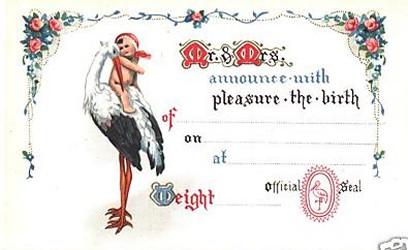 Mr. & Mrs.
announce·with
pleasure·the·birth
of
on
at
Weight
Official Seal